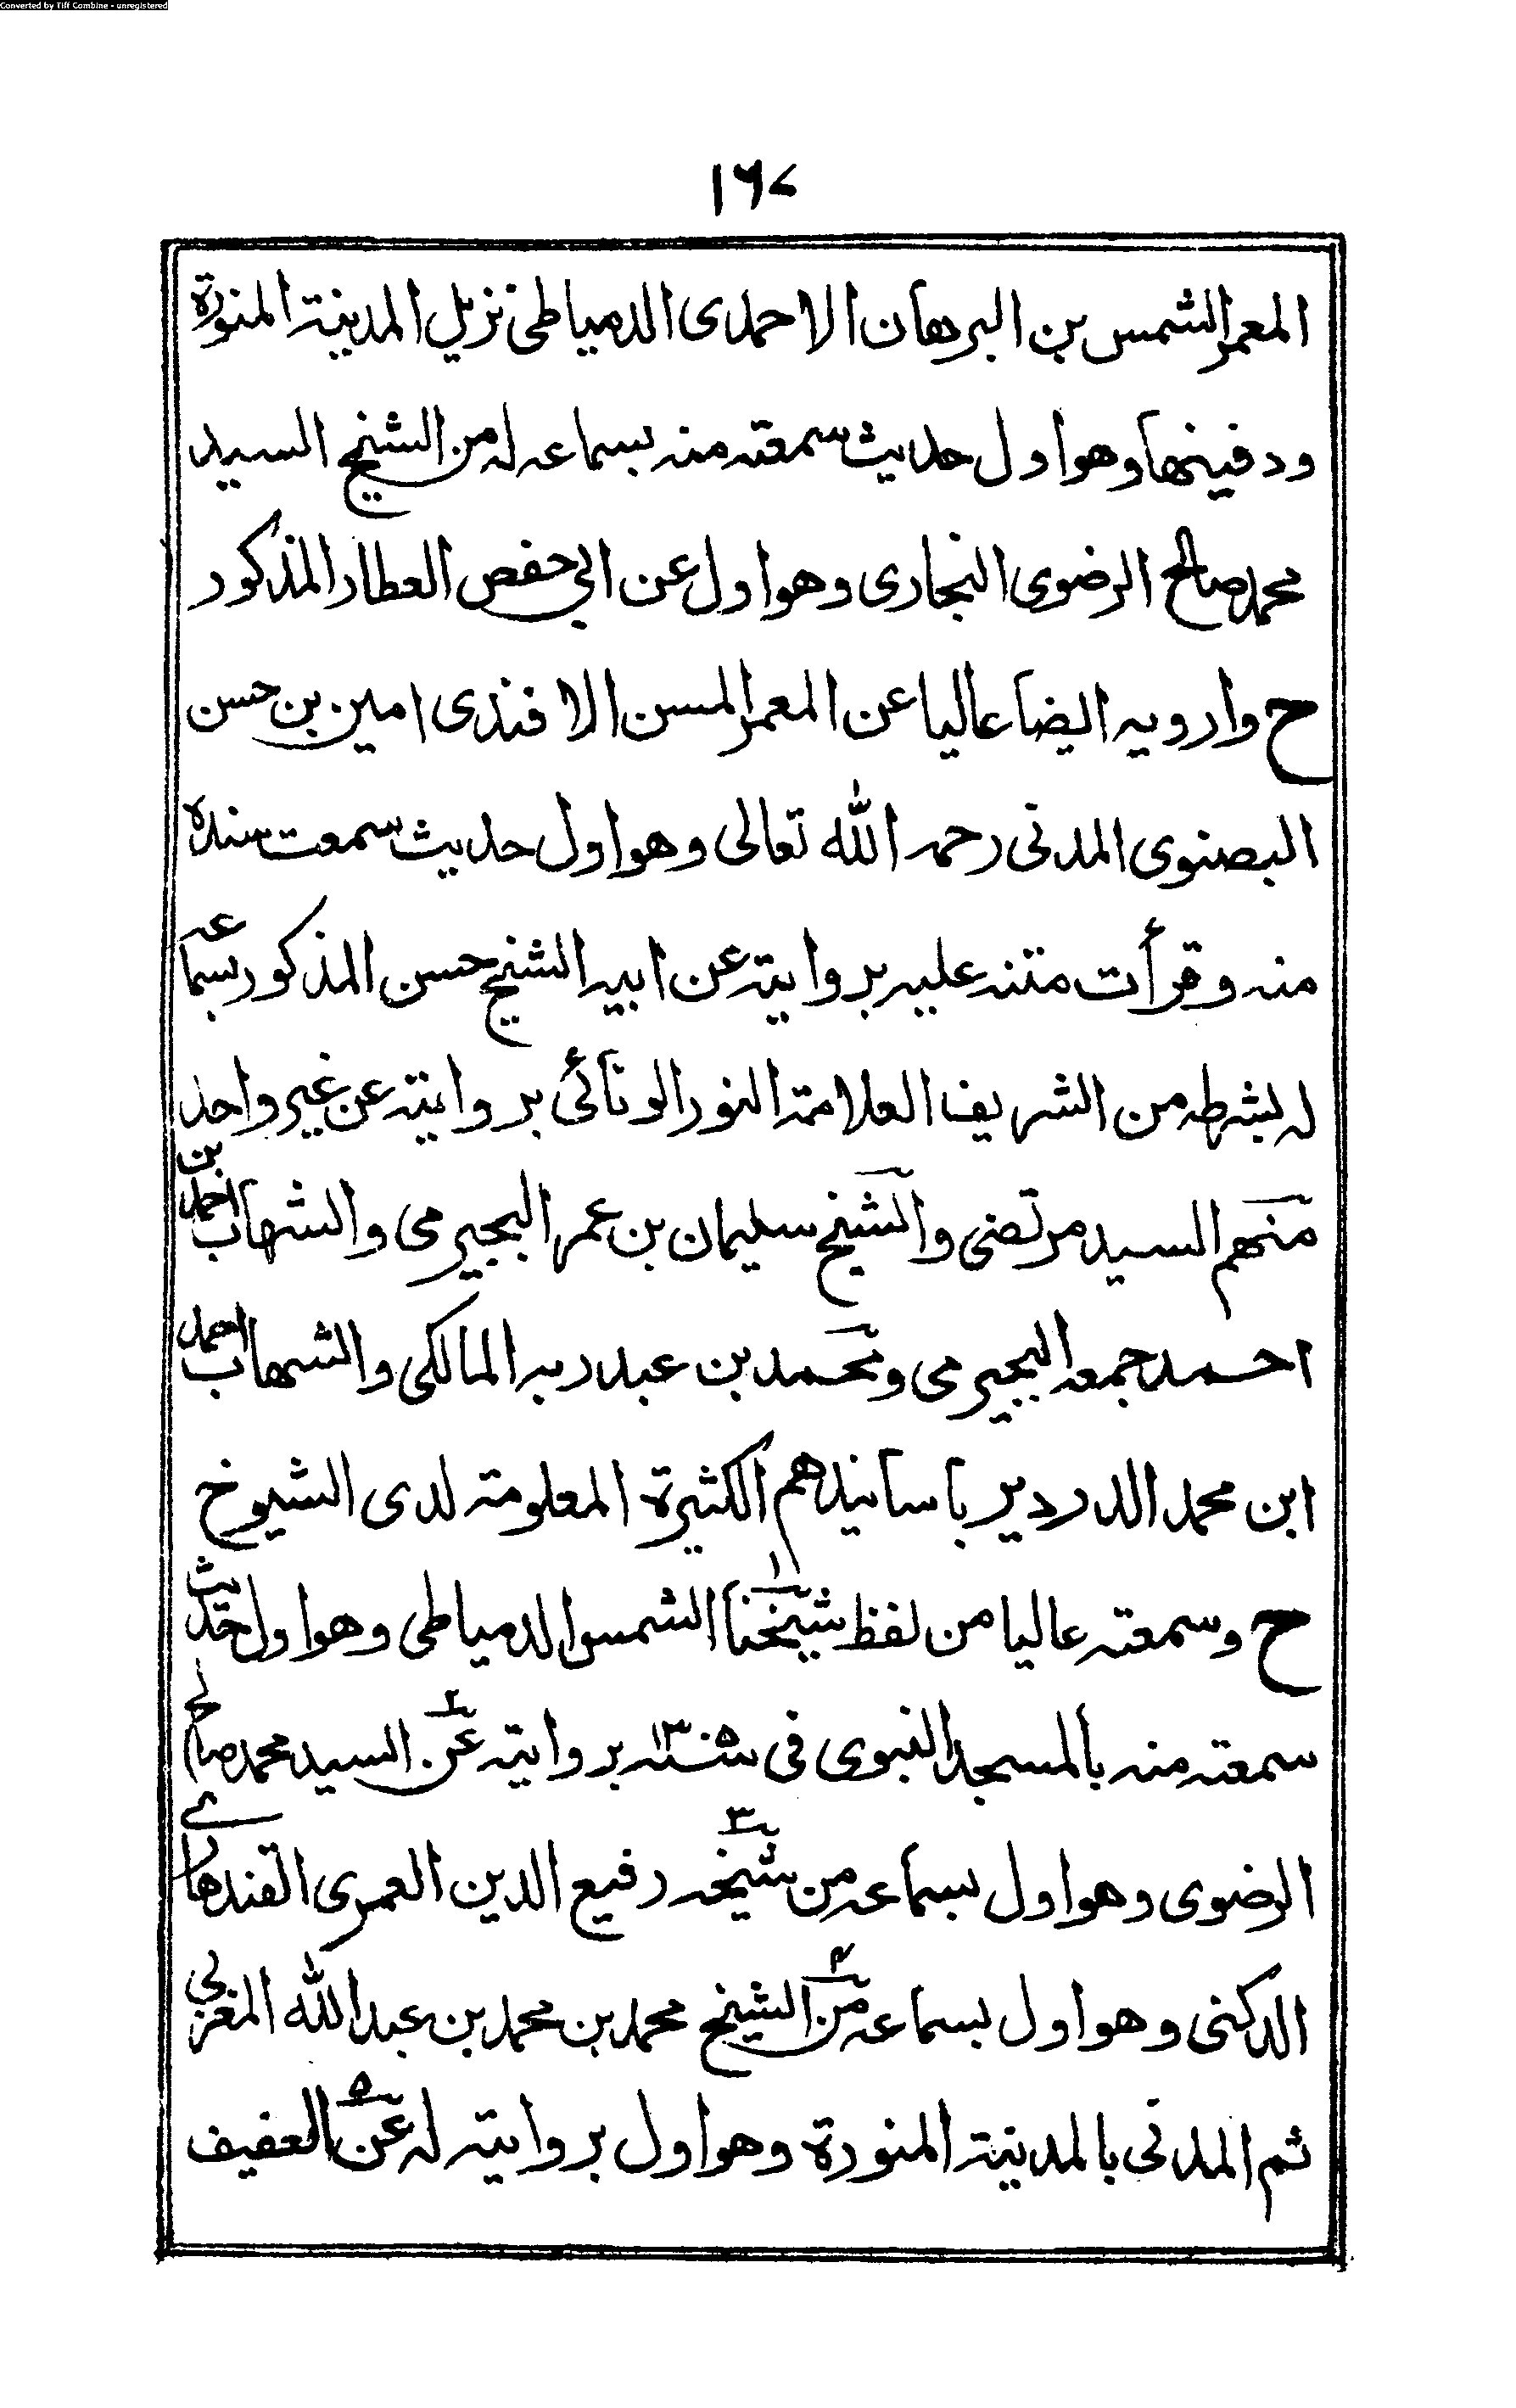 Converted by Tiff Combine - unregistered
١٦٧
المعمر الشمس بن البرهان الاحمدى الدمياطى نزيل المدينة المنورة
ودفينها وهو اول حديث سمعته منه بسماعه له من الشيخ السيد
محمد صالح الرضوى البخارى وهو اول عن ابي حفص العطار المذكور
ح وارويه ايضا عاليا عن المعمر المسن الافندى امين بن حسن
البصنوى المدنى رحمه الله تعالى وهو اول حديث سمعت سنده
منه وقرأت متنه عليه بروايته عن ابيه الشيخ حسن المذكور بسماعه
له بشرطه من الشريف العلامة النور الونائى بروايته عن غير واحد
منهم السيد مرتضى والشيخ سليمان بن عمر البجيرمى والشهاب احمد بن
احمد جمعه البجيرمى ومحمد بن عبد ربه المالكى والشهاب احمد
ابن محمد الدردير باسانيدهم الكثيرة المعلومة لدى الشيوخ
ح وسمعته عاليا من لفظ شيخنا ١ الشمس الدمياطى وهو اول حديث
سمعته منه بالمسجد النبوى فى سنة ١٣٠٥ بروايته عن ٢ السيد محمد صالح
الرضوى وهو اول بسماعه من شيخه ٣ رفيع الدين العمرى القندهارے
الدكنى وهو اول بسماعه من ٤ الشيخ محمد بن محمد بن عبد الله المغربي
ثم المدنى بالمدينة المنورة وهو اول بروايته له عن ٥ العفيف